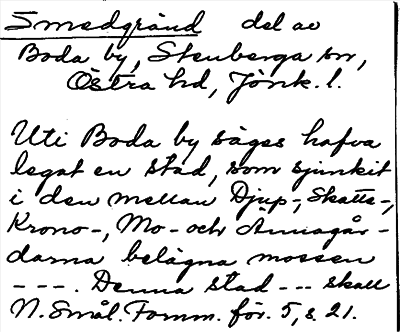 Smedgränd del av
Boda by, Stenberga sn,
Östra hd, Jönk. l.
Uti Boda by säges hafva
legat en stad, som sjunkit
i den mellan Djup-, Skatte-,
Krono-, Mo- och Annagår-
darna belägna mossen
---. Denna stad --- skall
N. Smål. Fornm. för. 5, s. 21.